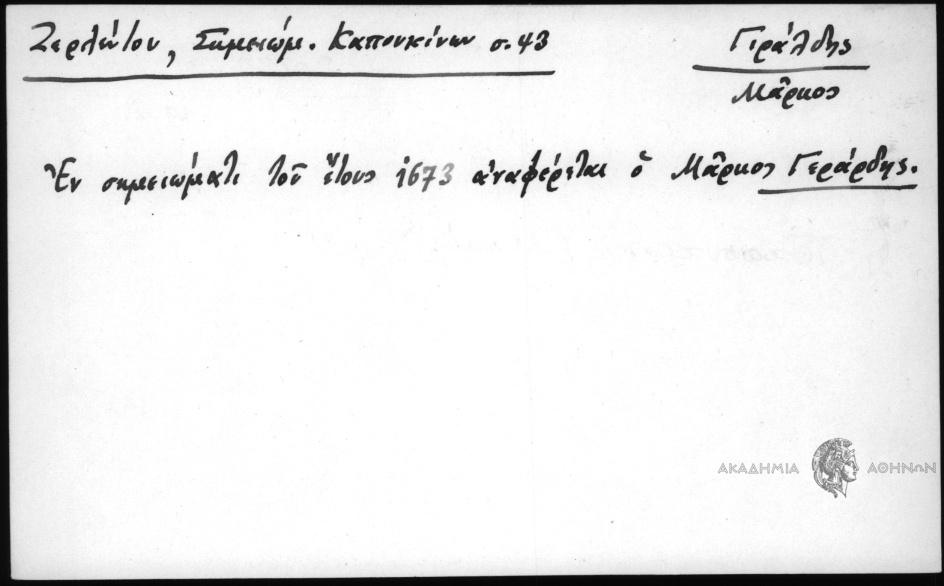 Ζερλέντου, Σημειώμ. Καπουκίνων σ. 43
Γιράλδης
Μᾶρκος
Ἐν σημειώματι τοῦ ἔτους 1673 ἀναφέρεται ὁ Μᾶρκος Γεράρδης.
ΑΚΑΔΗΜΙΑ ΑΘΗΝΩΝ